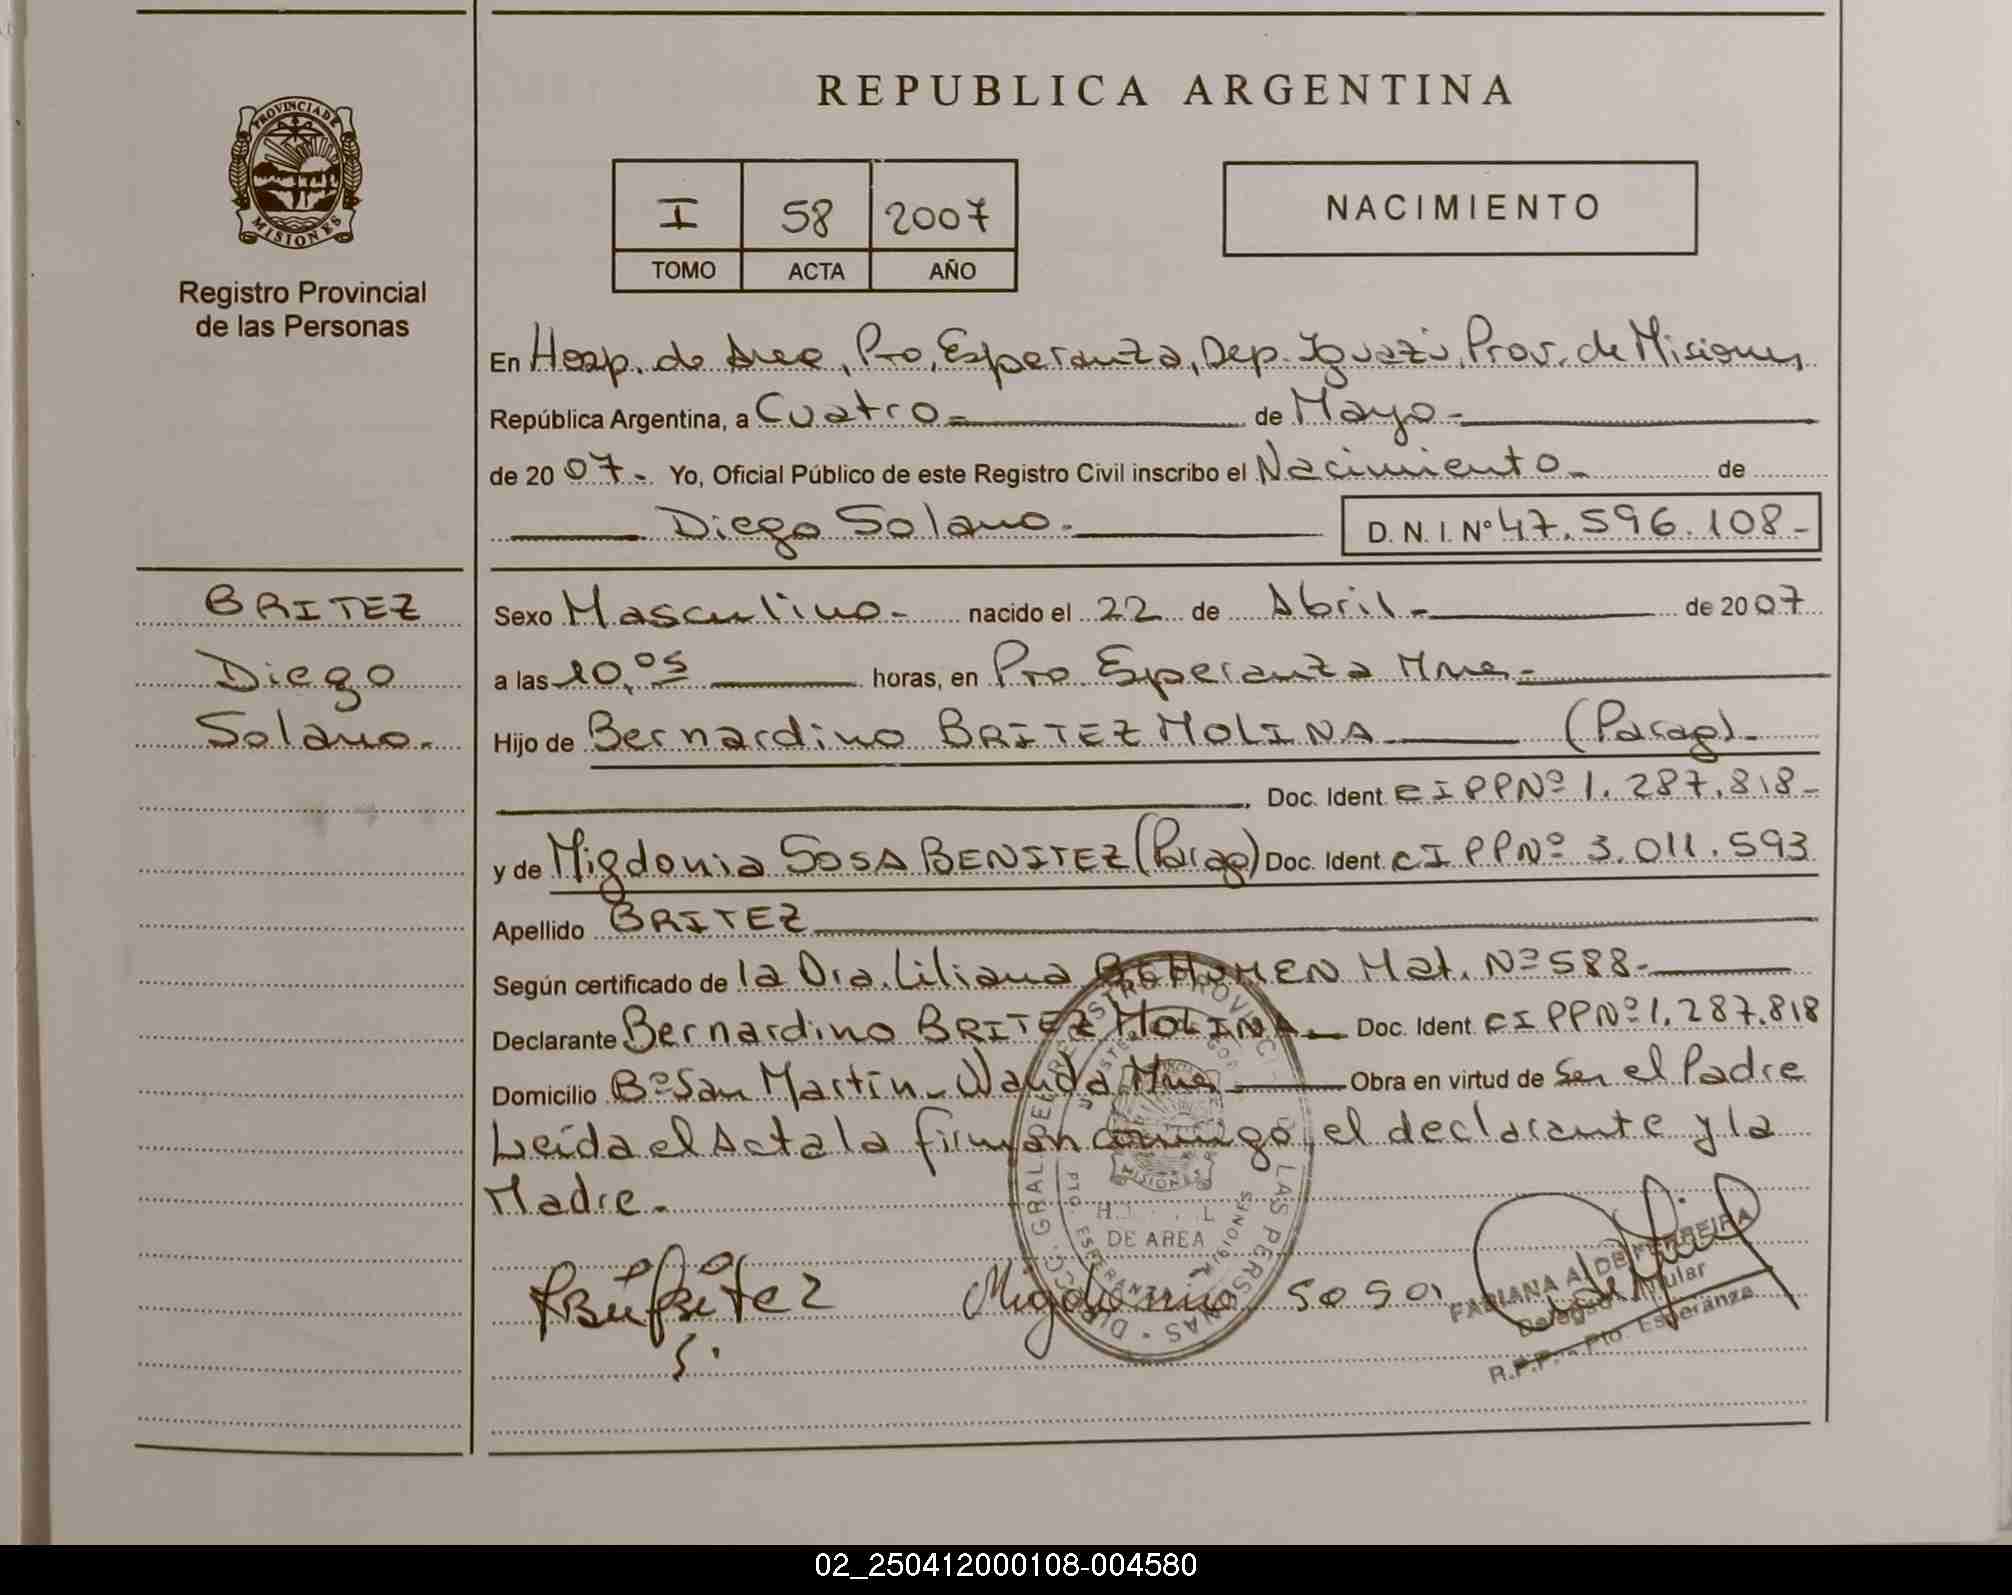 REPUBLICA ARGENTINA
PROVINCIA DE MISIONES
Registro Provincial
de las Personas
I 58 2007
TOMO ACTA AÑO
NACIMIENTO
En Hosp. de Area, Pto. Esperanza, Dep. Iguazú, Prov. de Misiones
República Argentina, a Cuatro - de Mayo -
de 2007 - Yo, Oficial Público de este Registro Civil inscribo el Nacimiento - de
Diego Solano - D. N. I. Nº 47.596.108 -
BRITEZ
Diego
Solano -
Sexo Masculino - nacido el 22 de Abril - de 2007
a las 10,05 horas, en Pto Esperanza Mnes -
Hijo de Bernardino BRITEZ MOLINA (Parag) -
Doc. Ident. CI PP Nº 1.287.818 -
y de Migdonia SOSA BENITEZ (Parag) Doc. Ident. CI PP Nº 3.011.593
Apellido BRITEZ
Según certificado de la Dra. Liliana Mat. Nº 588 -
Declarante Bernardino BRITEZ MOLINA Doc. Ident. CI PP Nº 1.287.818
Domicilio Bº San Martín - Wanda Mnes Obra en virtud de Ser el Padre
Leída el Acta la firman conmigo, el declarante y la
Madre -
DE AREA
Britez
Migdonia Sosa
FABIANA A. DE FERREIRA
Delegada Titular
R.P.P. - Pto. Esperanza
02_250412000108-004580